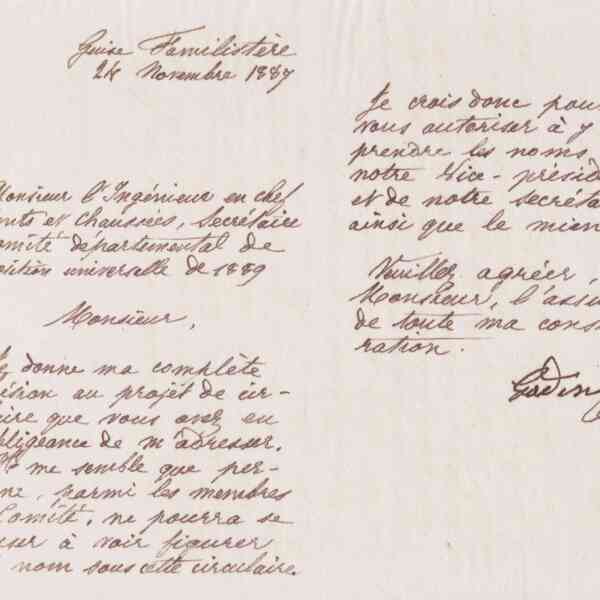 Guise Familistère
24 Novembre 1887
Monsieur l'Ingénieur en chef
onts et Chaussées, Secrétaire
omité départemental de
osition universelle de 1889
Monsieur,
donne ma complète
ision au projet de cir-
aire que vous avez eu
bligeance de m'adresser.
Il me semble que per-
ne, parmi les membres
Comité, ne pourra se
user à voir figurer
nom sous cette circulaire.
Je crois donc pouv
vous autoriser à y
prendre les noms
notre Vice-présid
et de notre secréta
ainsi que le mien
Veuillez agréer,
Monsieur, l'assu
de toute ma consi
ration.
Godin